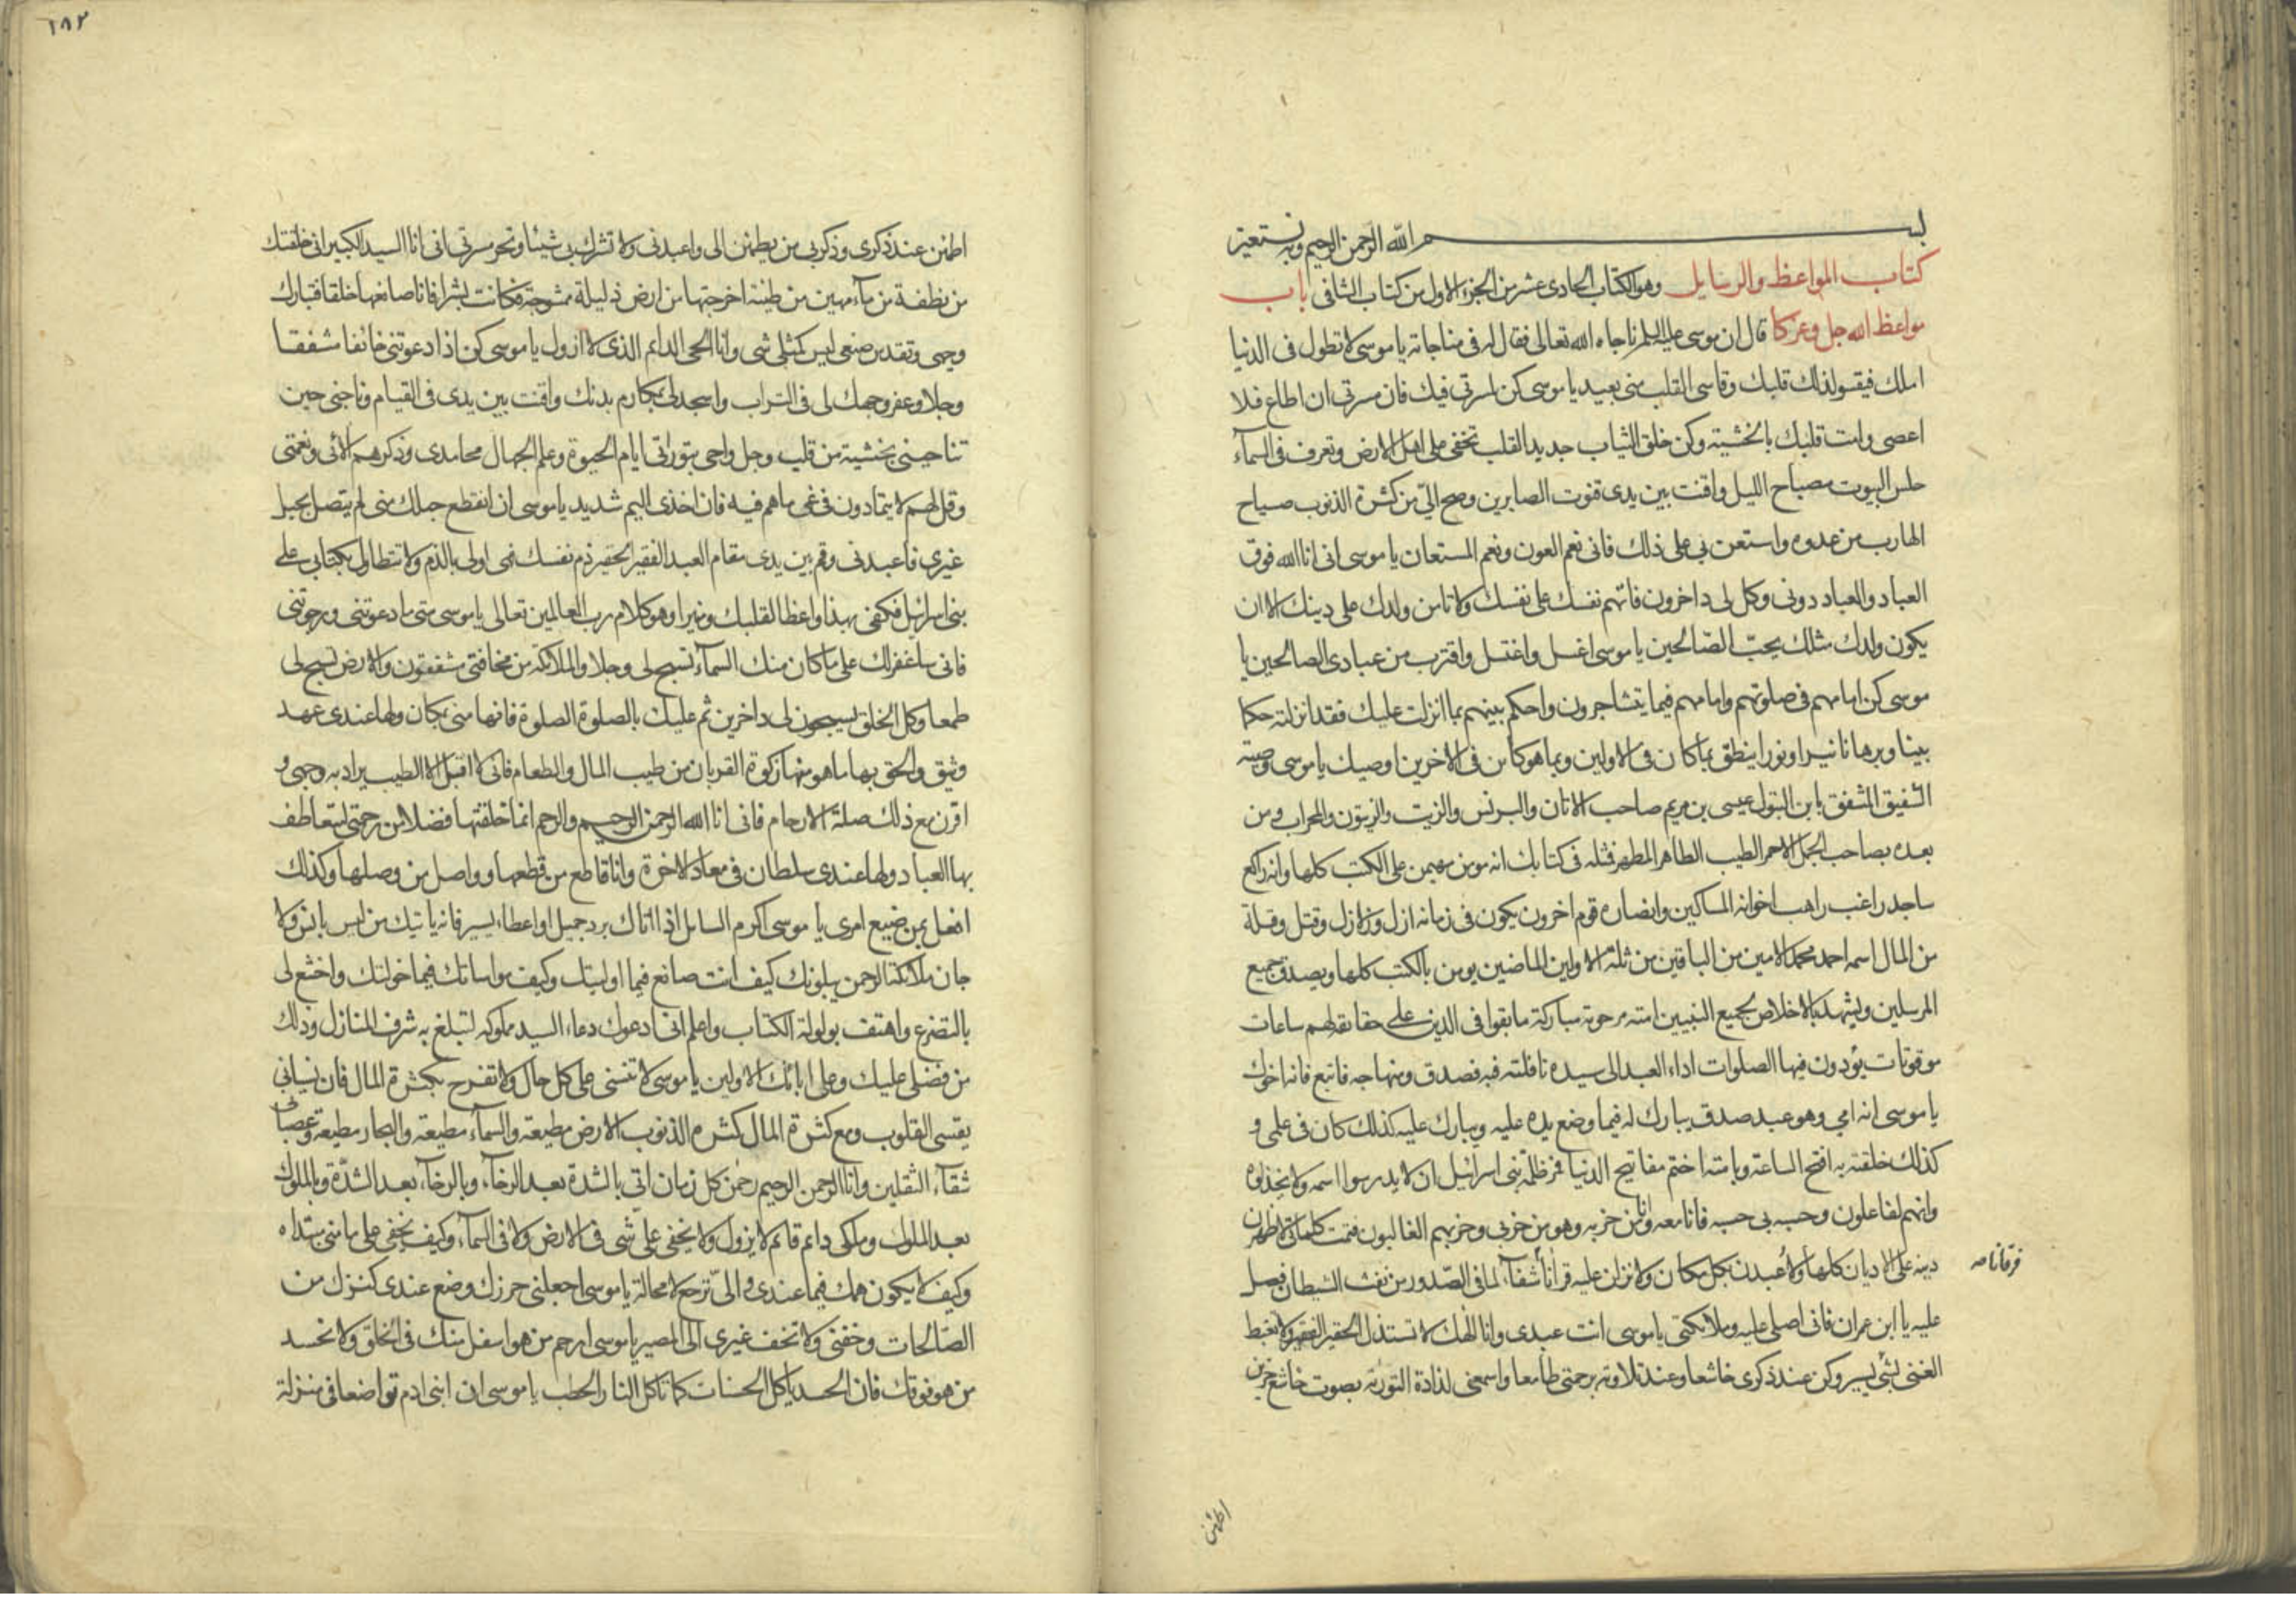 بسم الله الرحمن الرحيم وبه نستعين
كتاب المواعظ والرسايل وهو الكتاب الحادى عشر من الجزء الاول من كتاب الشافى باب
مواعظ الله جل وعز كا قال ان موسى عليه السلم ناجاه الله تعالى فقال له فى مناجاته يا موسى لا تطول فى الدنيا
املك فيقسو لذلك قلبك وقاسى القلب منى بعيد يا موسى كن كمسرتى فيك فان مسرتى ان اطاع فلا
اعصى وامت قلبك بالخشية وكن خلق الثياب جديد القلب تخفى على اهل الارض وتعرف فى السمآء
حلس البيوت مصباح الليل واقنت بين يدى قنوت الصابرين وصح الىّ من كثرة الذنوب صياح
الهارب من عدوه واستعن بى على ذلك فانى نعم العون ونعم المستعان يا موسى انى انا الله فوق
العباد والعباد دونى وكل لى داخرون فاتّهم نفسك على نفسك ولا تامن ولدك على دينك الا ان
يكون ولدك مثلك يحبّ الصّالحين يا موسى اغسل واغتسل واقترب من عبادى الصالحين يا
موسى كن امامهم فى صلوتهم وامامهم فيما يتشاجرون واحكم بينهم بما انزلت عليك فقد انزلته حكما
بينا وبرهانا نيرا ونورا ينطق بما كان فى الاولين وبما هو كائن فى الاخرين اوصيك يا موسى وصية
الشفيق المشفق بابن البتول عيسى بن مريم صاحب الاتان والبرنس والزيت والزيتون والمحراب ومن
بعده بصاحب الجمل الاحمر الطيب الطاهر المطهر فمثله فى كتابك انه مومن مهيمن على الكتب كلها وانه راكع
ساجد راغب راهب اخوانه المساكين وانصاره قوم اخرون يكون فى زمانه ازل وزلازل وقتل وقلة
من المال اسمه احمد محمد الامين من الباقين من ثلة الاولين الماضين يومن بالكتب كلها ويصدق جميع
المرسلين ويشهد بالاخلاص لجميع النبيين امته مرحومة مباركة ما بقوا فى الدين على حقايقه لهم ساعات
موقوتات يؤدون فيها الصلوات اداء العبد الى سيده نافلته فبه فصدق ومنهاجه فاتبع فانه اخوك
يا موسى انه امي وهو عبد صدق يبارك له فيما وضع يده عليه ويبارك عليه كذلك كان فى علمى و
كذلك خلقته به افتح الساعة وبامته اختم مفاتيح الدنيا فمر ظلمة بنى اسرائيل ان لا يدرسوا اسمه ولا يخذلوه
وانهم لفاعلون وحبه بى حسبه فانا معه وانا من حزبه وهو من حزبى وحزبهم الغالبون فتمت كلماتى لاظهرن
دينه على الاديان كلها ولأعبدن بكل مكان ولانزلن عليه قرأناً شفآءً لما فى الصّدور من نفث الشيطان فصل
فرقانا صه
عليه يا ابن عمران فانى اصلى عليه وملائكتى يا موسى انت عبدى وانا الٰهك لا تستذل الحقير الفقير ولا تغبط
الغنى بشئ يسير وكن عند ذكرى خاشعا وعند تلاوته برحمتى طامعا واسمعنى لذاذة التورية بصوت خاشع حزين
اطمئن
١٨٢
اطمئن عند ذكرى وذكر بى من يطمئن الى واعبدنى ولا تشرك بى شيئا وتحر مسرتى انى انا السيد الكبير انى خلقتك
من نطفة من مآء مهين من طينة اخرجتها من ارض ذليلة ممشوجة فكانت بشرا فانا صانعها خلقا فتبارك
وجهى وتقدس صنعى ليس كمثلى شى وانا الحى الدايم الذى لا ازول يا موسى كن اذا دعوتنى خائفا مشفقا
وجلا وعفر وجهك لى فى التراب واسجد لى بمكارم بدنك واقنت بين يدى فى القيام وناجنى حين
تناجينى بخشية من قلب وجل واحى بتوراتى ايام الحيوة وعلم الجهال محامدى وذكرهم آلائى ونعمتى
وقل لهم لا يتمادون فى غى ما هم فيه فان اخذى اليم شديد يا موسى ان انقطع حبلك منى لم يتصل بحبل
غيرى فاعبدنى وقم بين يدى مقام العبد الفقير الحقير ذم نفسك فهى اولى بالذم ولا تتطاول بكتابى على
بنى اسرائيل فكفى بهذا واعظا لقلبك ومنيرا وهو كلام رب العالمين تعالى يا موسى متى ما دعوتنى ورجوتنى
فانى ساغفر لك على ما كان منك السمآء تسبح لى وجلا والملائكة من مخافتى مشفقون والارض تسبح لى
طمعا وكل الخلق يسبحون لى داخرين ثم عليك بالصلوة الصلوة فانها منى بمكان ولها عندى عهد
وثيق والحق بها ما هو منها زكوة القربان من طيب المال والطعام فانى لا اقبل الا الطيب يراد به وجهى و
اقرن مع ذلك صلة الارحام فانى انا الله الرحمن الرحيم والرحم انا خلقتها فضلا من رحمتى ليتعاطف
بها العباد ولها عندى سلطان فى معاد الاخرة وانا قاطع من قطعها وواصل من وصلها وكذلك
افعل بمن ضيع امرى يا موسى اكرم السائل اذا اتاك برد جميل او اعطاء يسير فانه ياتيك من ليس بانس ولا
جان ملائكة الرحمن يبلونك كيف انت صانع فيما اوليتك وكيف مواساتك فيما خولتك واخشع لى
بالتضرع واهتف بولولة الكتاب واعلم انى ادعوك دعاء السيد مملوكه لتبلغ به شرف المنازل وذلك
من فضلى عليك وعلى ابائك الاولين يا موسى لا تنسنى على كل حال ولا تفرح بكثرة المال فان نسيانى
يقسى القلوب ومع كثرة المال كثرة الذنوب الارض مطيعة والسمآء مطيعة والبحار مطيعة وعصيانى
شقآء الثقلين وانا الرحمن الرحيم رحمٰن كل زمان اتى بالشدة بعد الرخآء وبالرخآء بعد الشدّة وبالملوك
بعد الملوك وملكى دايم قائم لا يزول ولا يخفى علىّ شى فى الارض ولا فى السمآء وكيف يخفى على ما منى مبتداه
وكيف لا يكون همك فيما عندى والىّ ترجع لا محالة يا موسى اجعلنى حرزك وضع عندى كنزك من
الصّالحات وخفنى ولا تخف غيرى الى المصير يا موسى ارحم من هو اسفل منك فى الخلق ولا تحسد
من هو فوقك فان الحسد ياكل الحسنات كما تاكل النار الحطب يا موسى ان ابنى ادم تواضعا فى منزلة